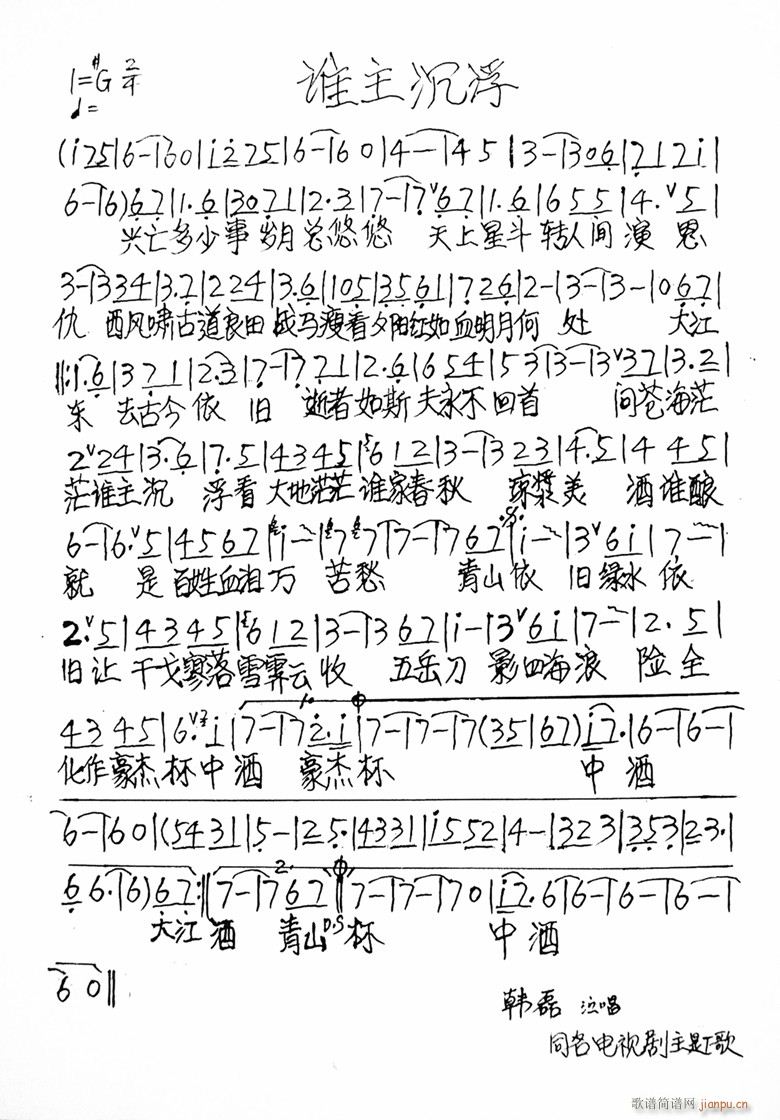 1=#G 2/4
谁主沉浮
♩=
(i 2 7 5 | 6 - | 6 0 | i 2 7 5 | 6 - | 6 0 | 4 - | 4 5 | 3 - | 3 0 6 | 7 1 7 i |
6 - | 6) 6 7 | 1. 6 | 3 0 7 1 | 2. 3 | 7 - | 7 6 7 | 1. 6 | 6 5 5 | 4. 5 |
兴亡多少事 岁月总悠悠 天上星斗转人间演恩
3 - | 3 3 4 | 3. 7 | 2 2 4 | 3. 6 | 1 0 5 | 3 5 6 1 | 7 2 6 | 2 - | 3 - | 3 - | 0 6 7 |
仇 西风啸古道良田 战马瘦看夕阳红如血明月何处 大江
‖: 1. 6 | 3 7 1 | 2. 3 | 7 - | 7 7 1 | 2. 6 | 6 5 4 | 1 5 3 | 3 - | 3 3 7 | 3. 2 |
东 去古今依旧 逝者如斯夫永不回首 问苍海茫
2 2 4 | 3. 6 | 7. 5 | 4 3 4 5 | 6 1 2 | 3 - | 3 2 3 | 4. 5 | 4 4 5 |
茫谁主沉 浮看大地茫茫谁家春秋 琼浆美 酒谁酿
6 - | 6. 5 | 4 5 6 7 | i - | 7 7 | 7 - | 7 6 7 | i - | 3 6 i | 7 - |
就 是百姓血泪万 苦愁 青山依 旧绿水依
2. 5 | 4 3 4 5 | 6 1 2 | 3 - | 3 6 7 | i - | 3 6 i | 7 - | 2. 5 |
旧让干戈寥落雪霁云收 五岳刀 影四海浪 险全
4 3 4 5 | 6. i | 7 - | 7 2. i | 7 - | 7 - | 7 - | 7 (3 5 | 6 7) | i 7. | 6 - | 6 - |
化作豪杰杯中酒 豪杰杯 中 酒
6 - | 6 0 | (5 4 3 1 | 5 - | 2 5. | 4 3 3 1 | i 5 5 2 | 4 - | 3 2 3 | 3 5 3 | 2 3. |
6 6. | 6) 6 7 :‖ 7 - | 7 6 7 ‖ 7 - | 7 - | 7 0 | i 7. 6 | 6 - | 6 - | 6 - |
大江 酒 青山 D.S 杯 中 酒
6 0 ‖
韩磊 演唱
同名电视剧主题歌
歌谱简谱网
jianpu.cn